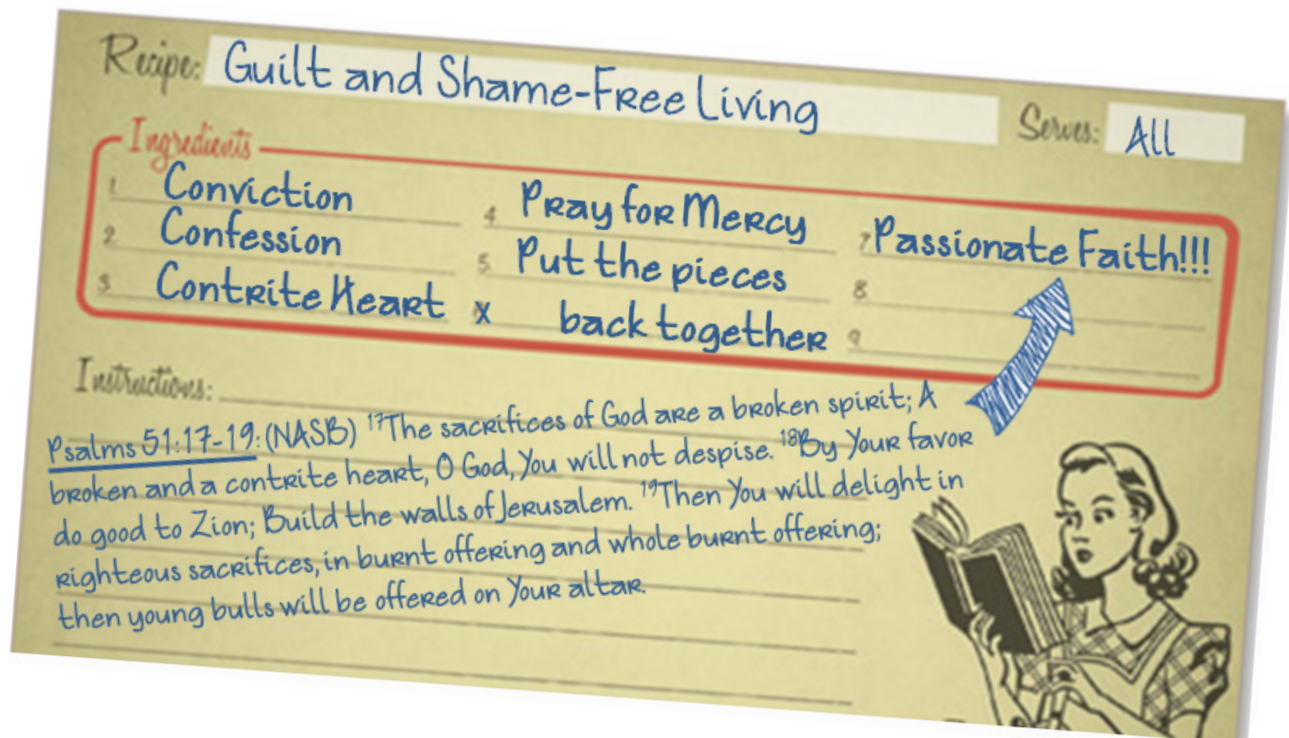 Recipe: Guilt and Shame-Free Living Serves: All
Ingredients
1. Conviction
2. Confession
3. Contrite Heart
4. Pray for Mercy
5. Put the pieces
x back together
7. Passionate Faith!!!
8.
9.
Instructions:
Psalms 51:17-19: (NASB) 17The sacrifices of God are a broken spirit; A
broken and a contrite heart, O God, You will not despise. 18By Your favor
do good to Zion; Build the walls of Jerusalem. 19Then You will delight in
righteous sacrifices, in burnt offering and whole burnt offering;
then young bulls will be offered on Your altar.